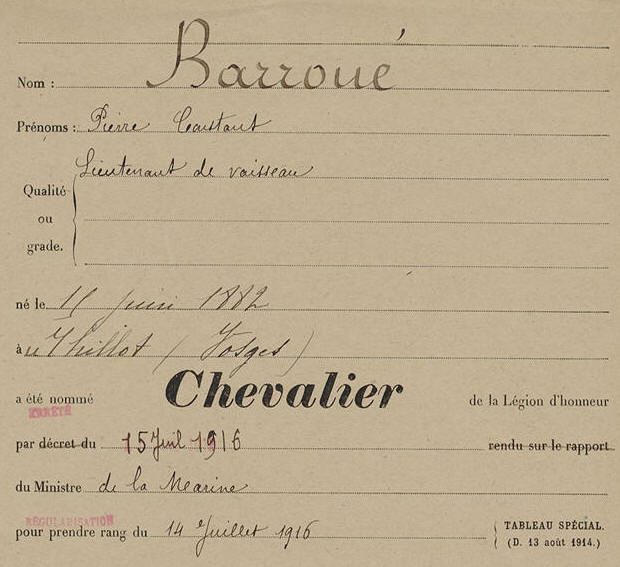 Nom : Barroué
Prénoms : Pierre Constant
Lieutenant de vaisseau
Qualité
ou
grade.
né le 15 juin 1882
à u Thillot ( Vosges )
a été nommé Chevalier de la Légion d'honneur
ARRÊTÉ
par décret du 15 Juil 1916 rendu sur le rapport
du Ministre de la Marine
RÉGULARISATION
pour prendre rang du 14 Juillet 1916
TABLEAU SPÉCIAL.
(D. 13 août 1914.)